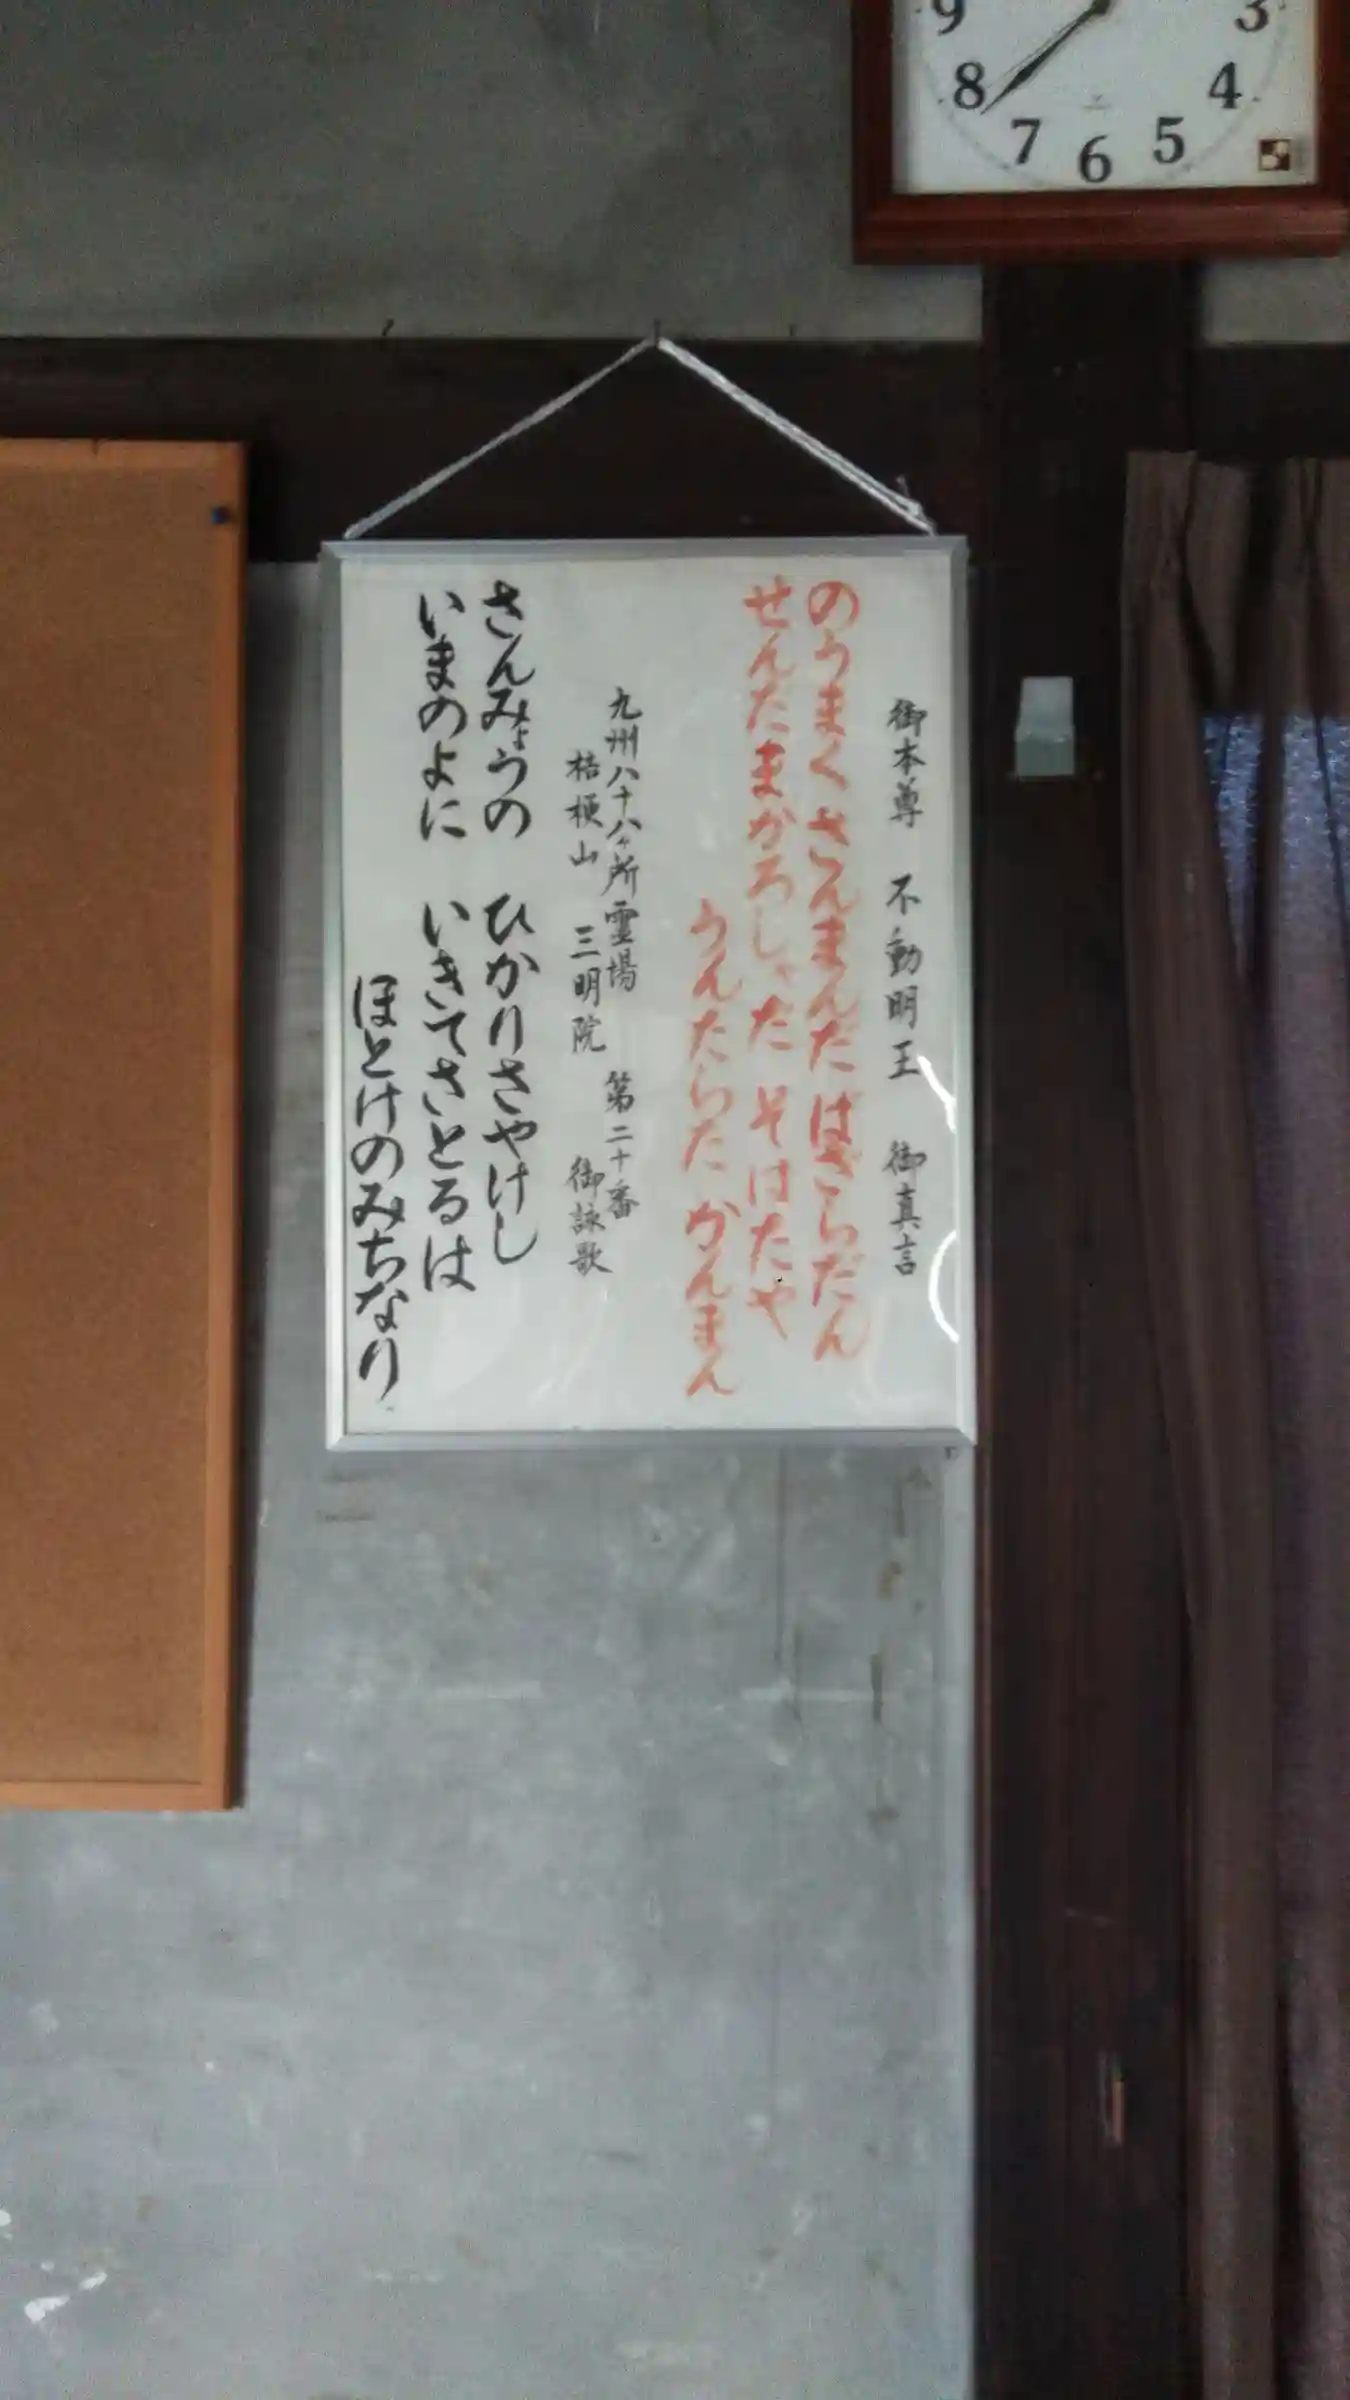 御本尊 不動明王 御真言
のうまく さんまんだ ばざらだん
せんだまかろしゃだ そはたや
うんたらた かんまん
九州八十八ヶ所霊場 第二十番
桔梗山 三明院 御詠歌
さんみょうの ひかりさやけし
いまのよに いきてさとるは
ほとけのみちなり
9
3
8
4
7
6
5